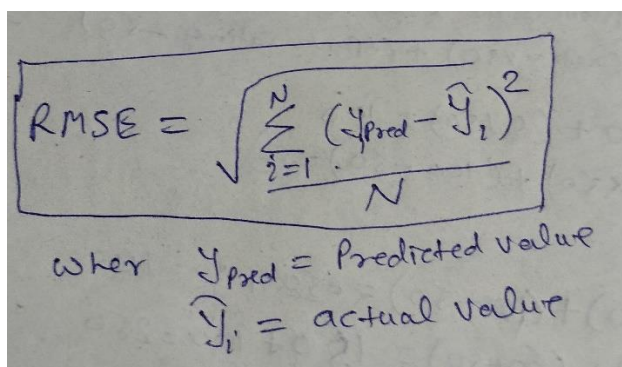 RMSE = √ N Σ i=1 (yPred - ŷi)² / N
wher yPred = Predicted value
ŷi = actual value